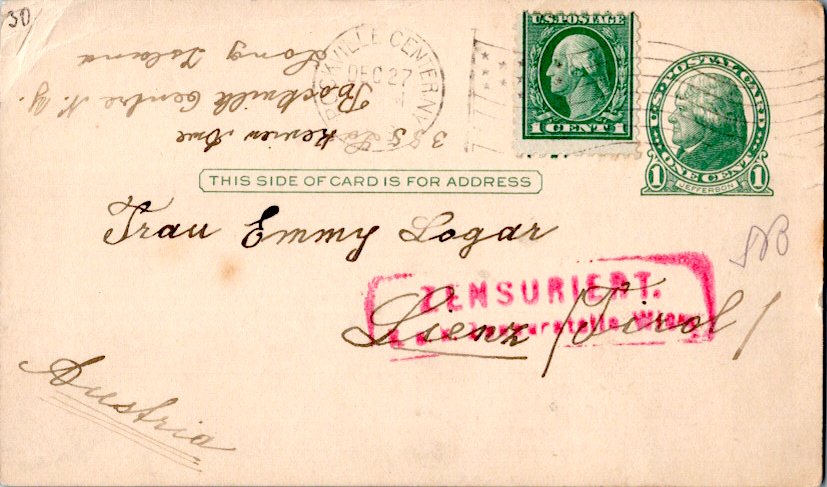 30
U.S. POSTAGE
1 CENT 1
ROCKVILLE CENTER N.Y.
DEC 27
U.S. POSTAL CARD
ONE CENT
1 JEFFERSON 1
355 Lakeview Ave
Rockville Centre N.Y.
Long Island
THIS SIDE OF CARD IS FOR ADDRESS
Frau Emmy Logar
ZENSURIERT.
Zensurstelle Wien
Lienz /Tirol/
Austria